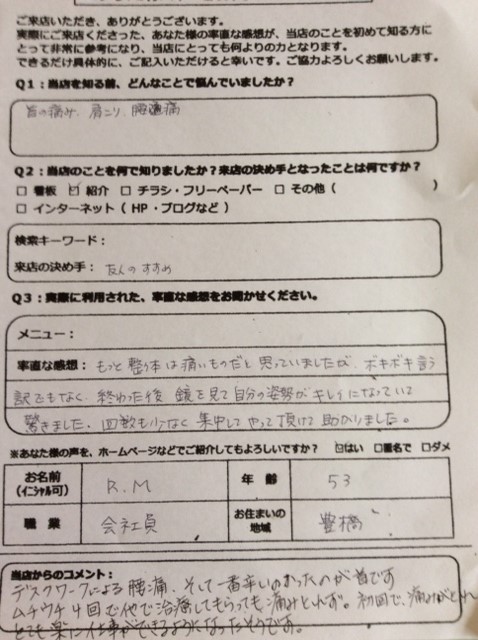 ご来店いただき、ありがとうございます。
実際にご来店くださった、あなた様の率直な感想が、当店のことを初めて知る方に
とって非常に参考になり、当店にとっても何よりの力となります。
できるだけ具体的に、ご記入いただけると幸いです。ご協力よろしくお願いします。
Q1：当店を知る前、どんなことで悩んでいましたか？
首の痛み、肩こり、腰痛
Q2：当店のことを何で知りましたか？来店の決め手となったことは何ですか？
□ 看板 ☑ 紹介 □ チラシ・フリーペーパー □ その他（ ）
□ インターネット（ HP・ブログなど ）
検索キーワード：
来店の決め手： 友人のすすめ
Q3：実際に利用された、率直な感想をお聞かせください。
メニュー：
率直な感想： もっと整体は痛いものだと思っていましたが、ボキボキ言う
訳でもなく、終わった後 鏡を見て自分の姿勢がキレイになっていて
驚きました。回数も少なく集中してやって頂けて助かりました。
※あなた様の声を、ホームページなどでご紹介してもよろしいですか？ ☑はい □匿名で □ダメ
お名前 R.M 年 齢 53
（イニシャル可）
職 業 会社員 お住まいの地域 豊橋
当店からのコメント：
デスクワークによる腰痛、そして一番辛いのだったのが首です
ムチウチ4回で他で治療してもらっても痛みとれず。初回で、痛みがとれ
とても楽に仕事ができるようになったそうです。